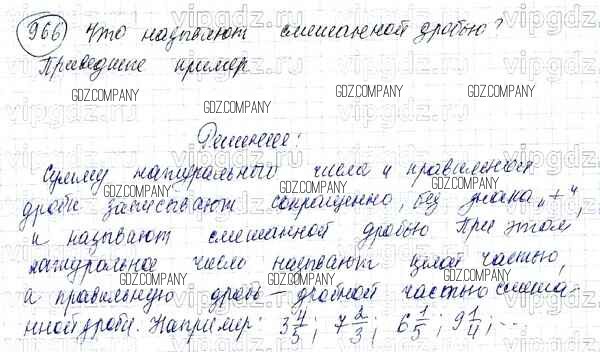 966 Что называют смешанной дробью?
Приведите пример
Решение:
Сумму натурального числа и правильной
дроби записывают сокращенно, без знака „+“,
и называют смешанной дробью При этом
натуральное число называют целой частью,
а правильную дробь – дробной частью смеша-
нной дроби. Например: 3 4/5; 7 2/3; 6 1/5; 9 1/4; ...
GDZ.COMPANY
vipgdz.ru